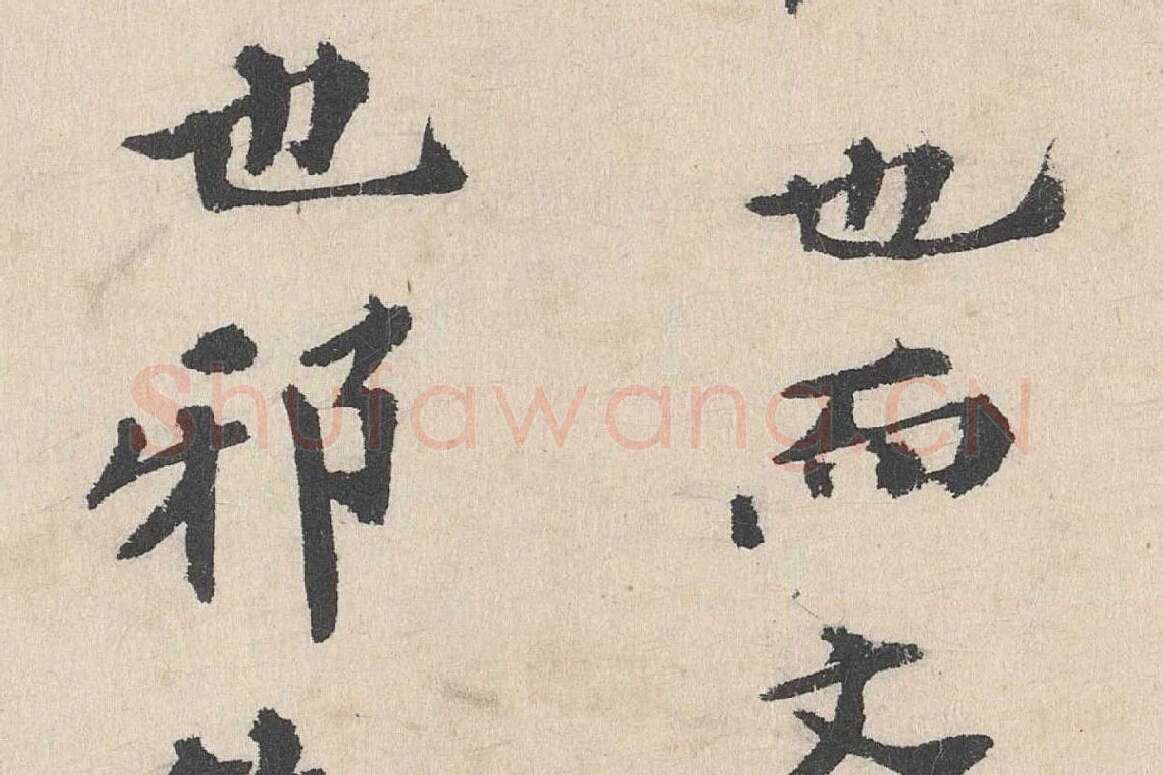 也而丈
也邪
Shufawang.CN